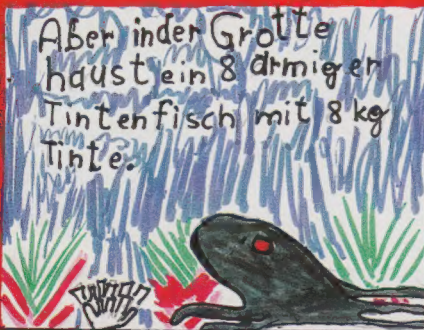 Aber inder Grotte
haust ein 8 ärmiger
Tintenfisch mit 8 kg
Tinte.